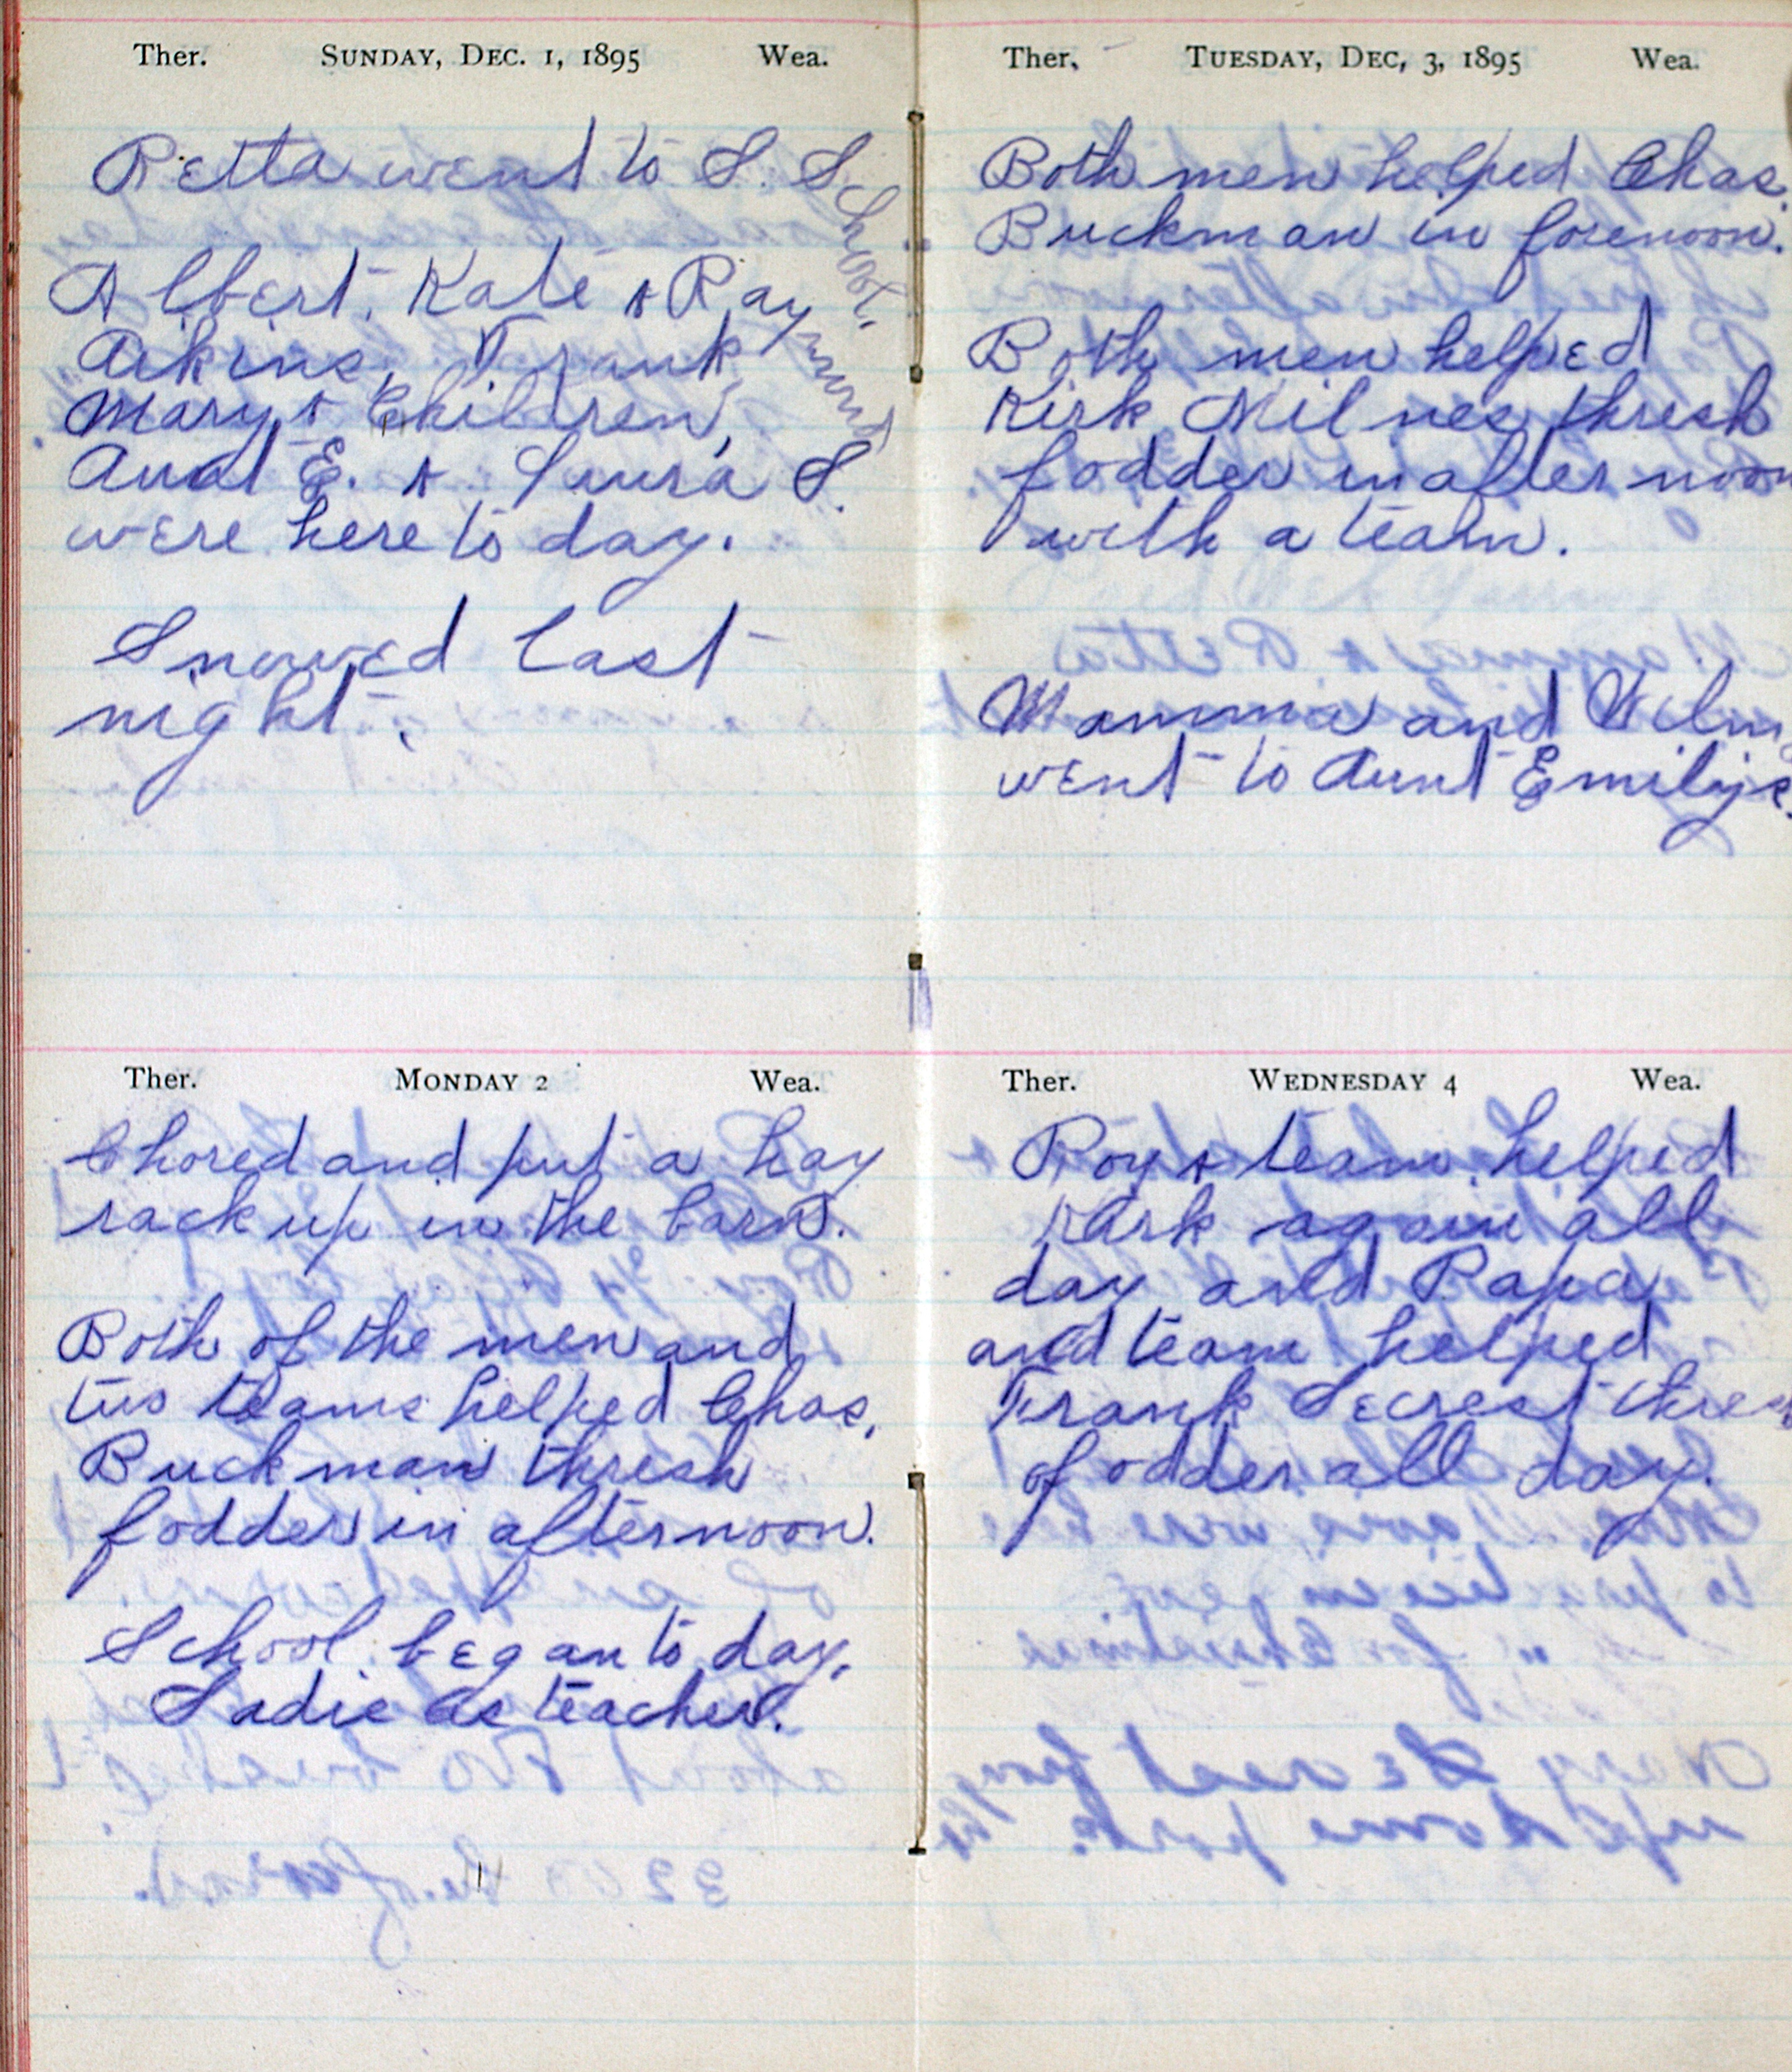 Ther. SUNDAY, DEC. 1, 1895 Wea.
Retta went to S. School.
Albert, Kate & Raymond
Aikins, Frank,
Mary & Children,
Aunt E. & Laura S.
were here to day.
Snowed last
night.
Ther. MONDAY 2 Wea.
Chored and put a hay
rack up in the barn.
Both of the men and
two teams helped Chas.
Buckman thresh
fodder in afternoon.
School began to day.
Sadie as teacher.
Ther. TUESDAY, DEC, 3, 1895 Wea.
Both men helped Chas.
Buckman in forenoon.
Both men helped
Kirk Milnes thresh
fodder in afternoon
with a team.
Mamma and
went to Aunt Emilys.
Ther. WEDNESDAY 4 Wea.
Roy & team helped
Kirk again all
day and Papa
and team helped
Frank Secrest thresh
fodder all day.